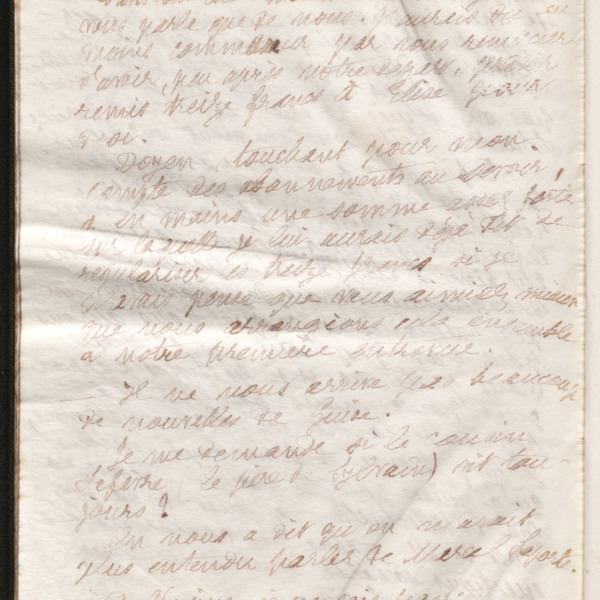 vous parle que de nous. J'aurais dû en
moins commencer par vous remercier
d'avoir, peu après notre départ,
remis treize francs à Elise pour
moi.
Doyen, touchant pour mon
compte des abonnements au Devoir,
a en mains une somme assez forte
sur laquelle je lui aurais déjà dit de
régulariser les treize francs si je
n'avais pensé que vous aimiez mieux
que nous arrangions cela ensemble
à notre première entrevue.
Il ne nous arrive pas beaucoup
de nouvelles de Guise.
Je me demande si le cousin
Lefèvre (le père de Sylvain) vit tou-
jours ?
On nous a dit qu'on n'avait
plus entendu parler de